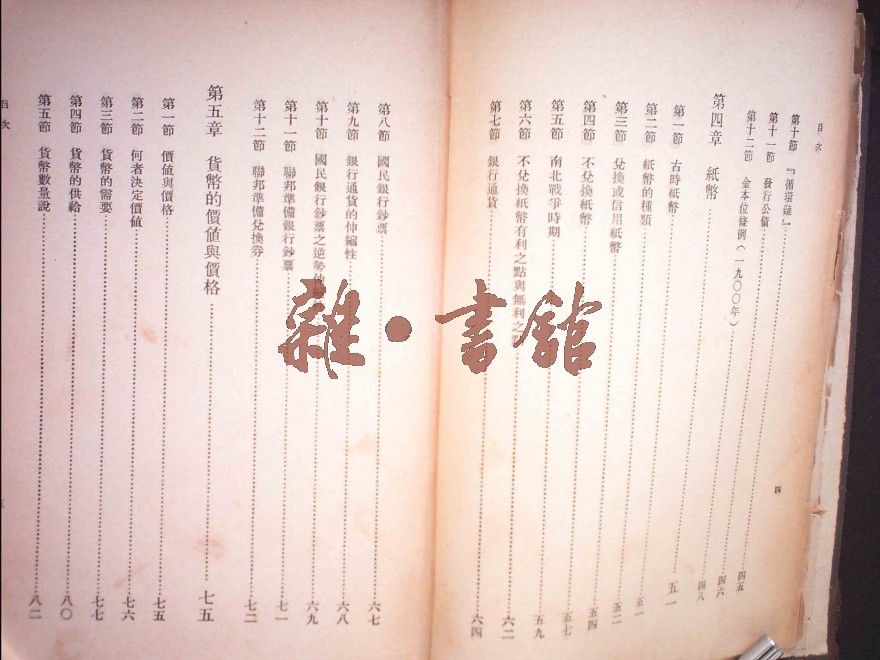 目次
第十節 『循環鏈』…………四五
第十一節 發行公債…………四六
第十二節 金本位條例(一九〇〇年)…………四八
第四章 紙幣…………五一
第一節 古時紙幣…………五一
第二節 紙幣的種類…………五二
第三節 兌換或信用紙幣…………五四
第四節 不兌換紙幣…………五七
第五節 南北戰爭時期…………五九
第六節 不兌換紙幣有利之點與無利之…………六二
第七節 銀行通貨…………六四
四
第八節 國民銀行鈔票…………六七
第九節 銀行通貨的伸縮性…………六八
第十節 國民銀行鈔票之逆勢…………六九
第十一節 聯邦準備銀行鈔票…………七一
第十二節 聯邦準備兌換券…………七二
第五章 貨幣的價值與價格…………七五
第一節 價值與價格…………七五
第二節 何者決定價值…………七六
第三節 貨幣的需要…………七七
第四節 貨幣的供給…………八〇
第五節 貨幣數量說…………八二
目次
雜•書館